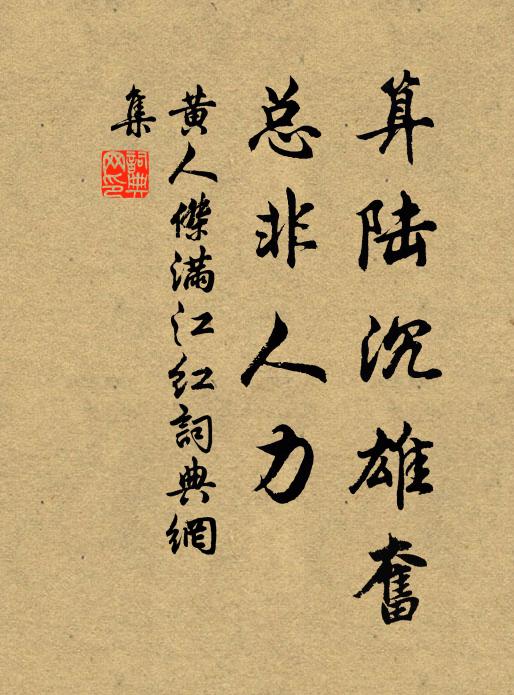 算陆沉雄奮
总非人力
黄人傑满江红詞典網
集
詞典网印